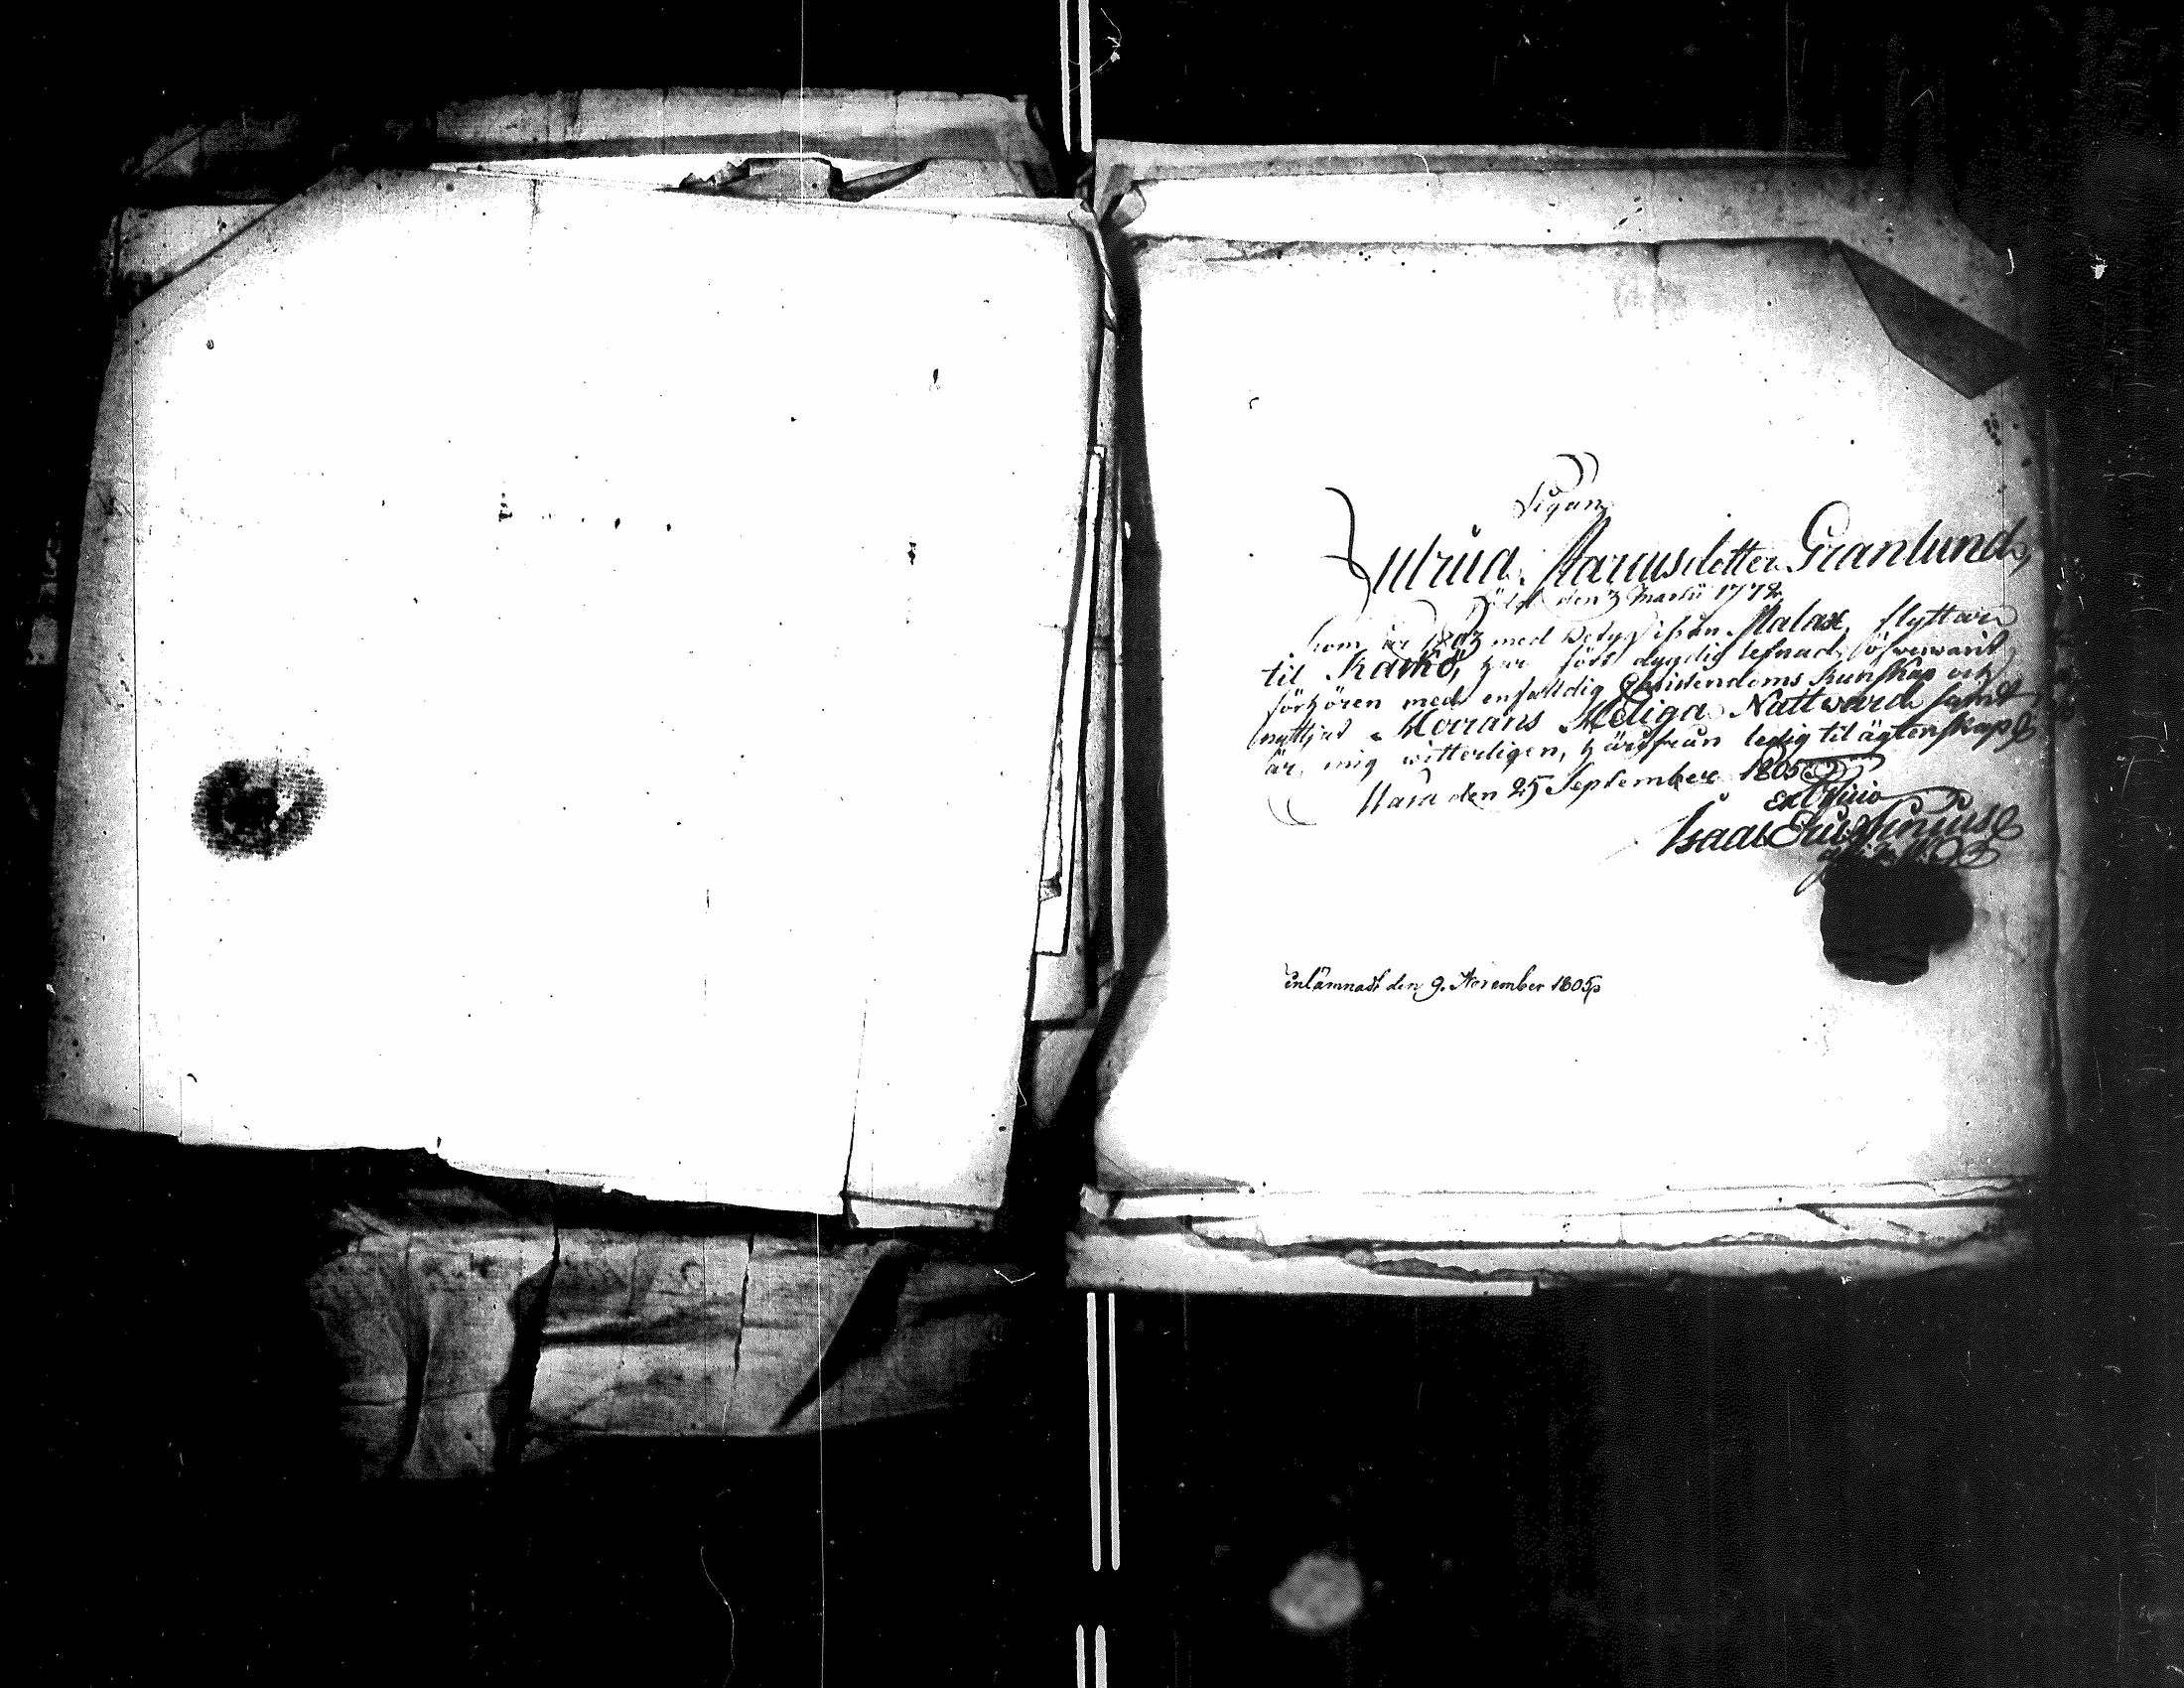 Pigan
Ulrica Marcusdotter Granlund,
född den 3 Martii 1772
som år 1803 med betyg ifrån Malax flyttade
til Raihö, har fört dygdig lefnad, öfwerwarit
förhören med enfaldig Christendoms kunskap och
nyttjat Herrans Heliga Nattward samt
är, mig witterligen, härifrån ledig til ägtenskap
Wasa den 25 September 1805
Ex Officio
Isaac
inlämnadt den 9. November 1805